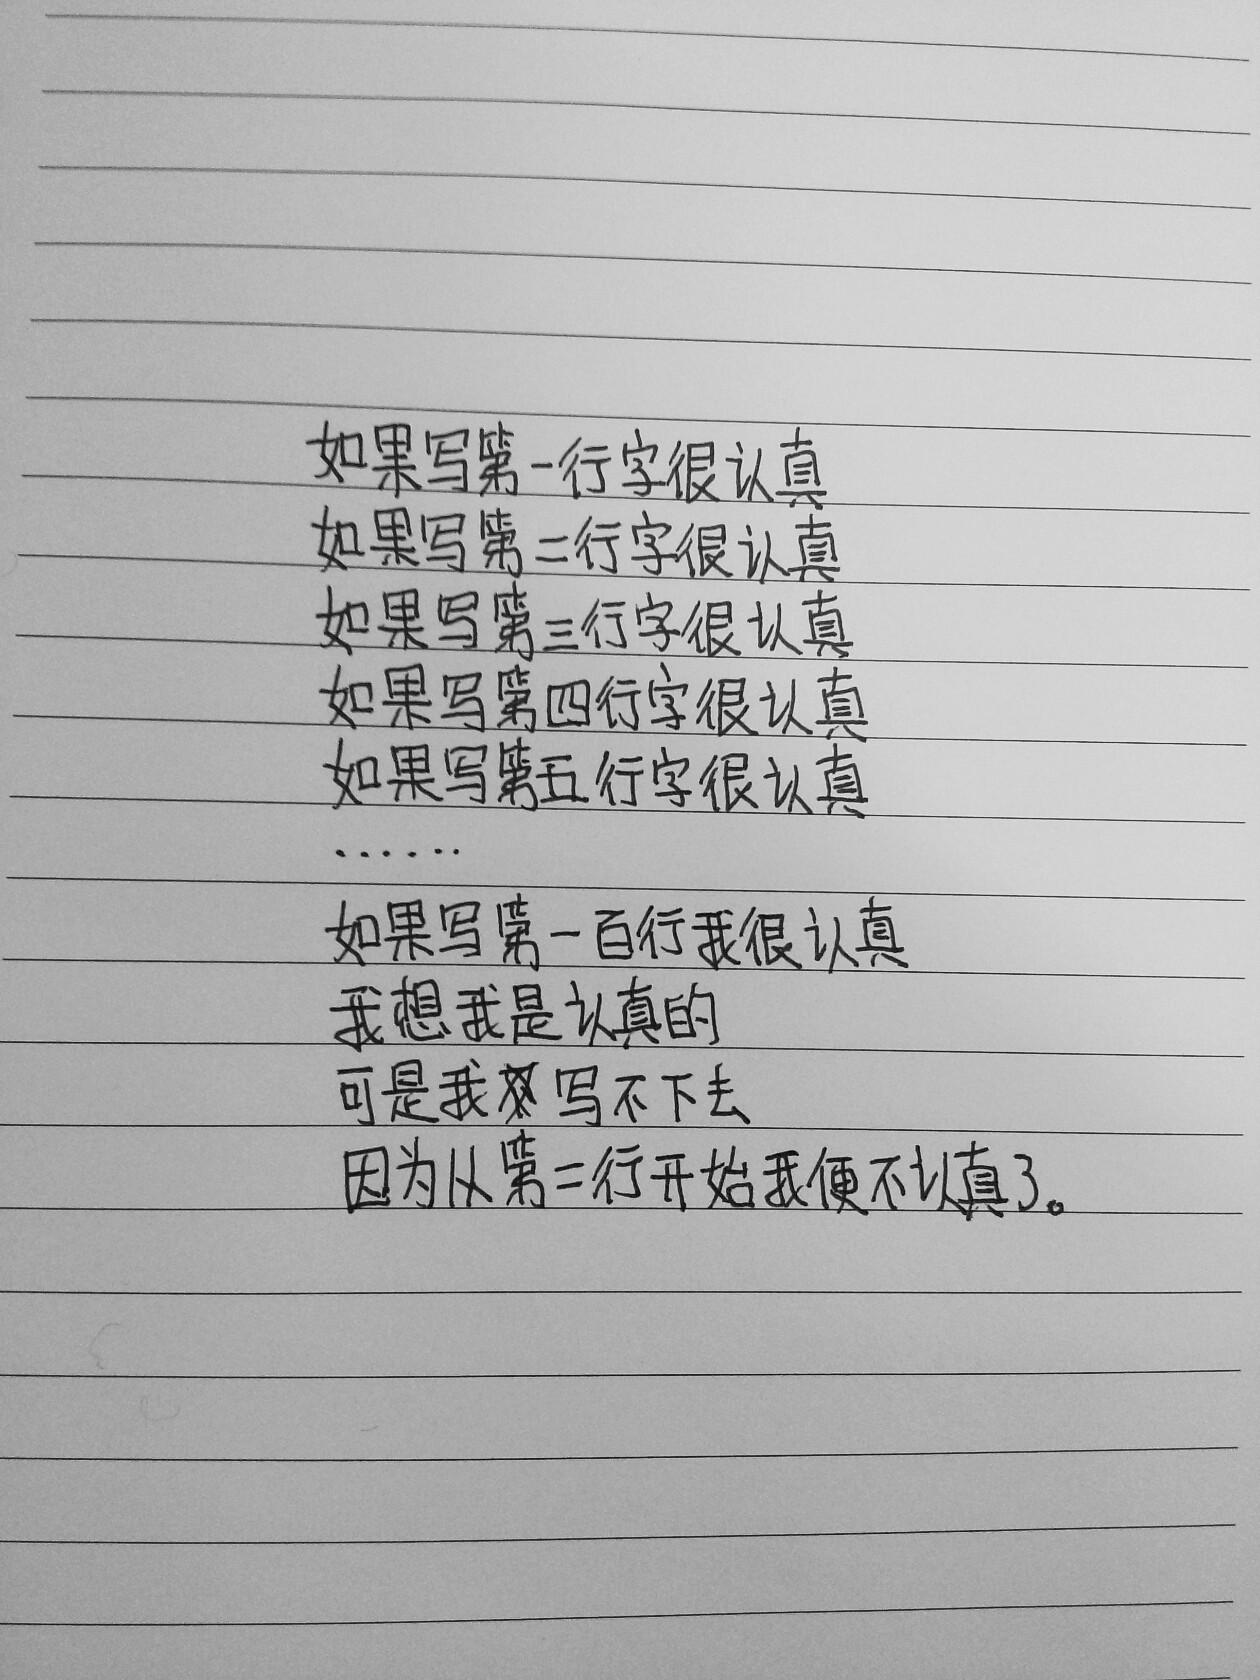 如果写第一行字很认真
如果写第二行字很认真
如果写第三行字很认真
如果写第四行字很认真
如果写第五行字很认真
······
如果写第一百行我很认真
我想我是认真的
可是我写不下去
因为从第二行开始我便不认真了。